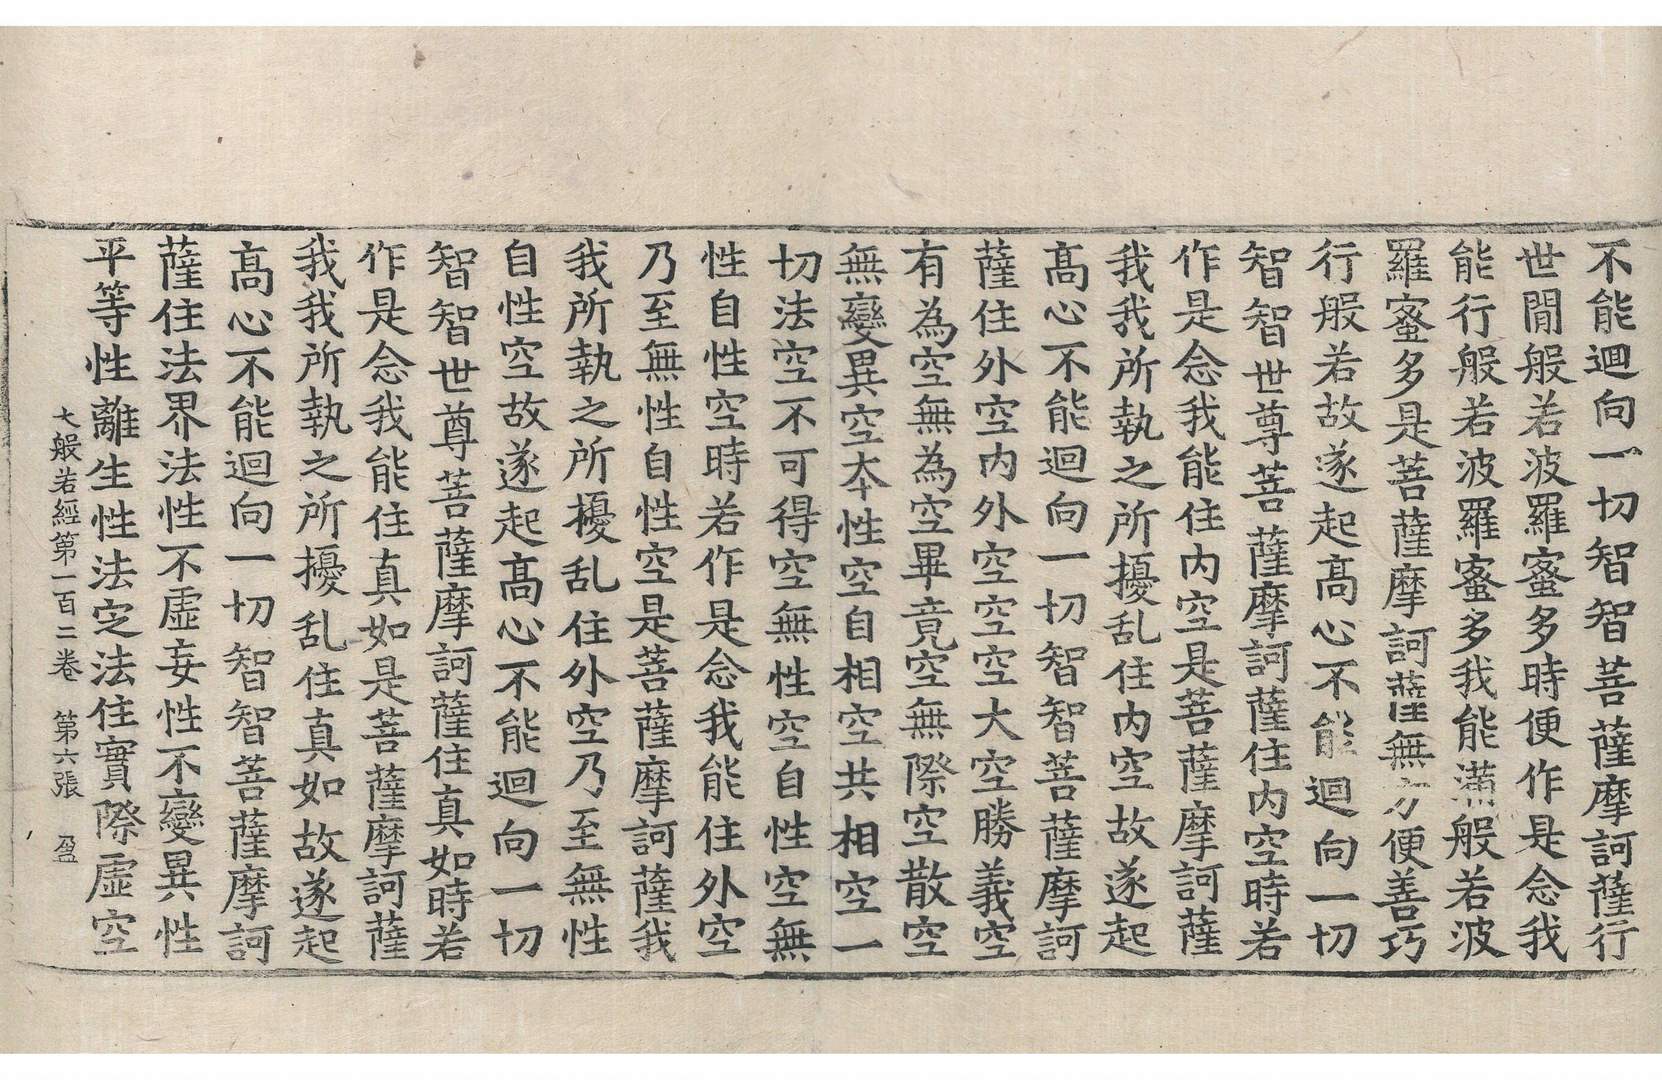 不能迴向一切智智菩薩摩訶薩行
世閒般若波羅蜜多時便作是念我
能行般若波羅蜜多我能滿般若波
羅蜜多是菩薩摩訶薩無方便善巧
行般若故遂起高心不能迴向一切
智智世尊菩薩摩訶薩住内空時若
作是念我能住内空是菩薩摩訶薩
我我所執之所擾乱住内空故遂起
髙心不能迴向一切智智菩薩摩訶
薩住外空内外空空空大空勝義空
有為空無為空畢竟空無際空散空
無變異空本性空自相空共相空一
切法空不可得空無性空自性空無
性自性空時若作是念我能住外空
乃至無性自性空是菩薩摩訶薩我
我所執之所擾乱住外空乃至無性
自性空故遂起髙心不能迴向一切
智智世尊菩薩摩訶薩住真如時若
作是念我能住真如是菩薩摩訶薩
我我所執之所擾乱住真如故遂起
髙心不能迴向一切智智菩薩摩訶
薩住法界法性不虛妄性不變異性
平等性離生性法定法住實際虛空
大般若經第一百二卷 第六張 盈